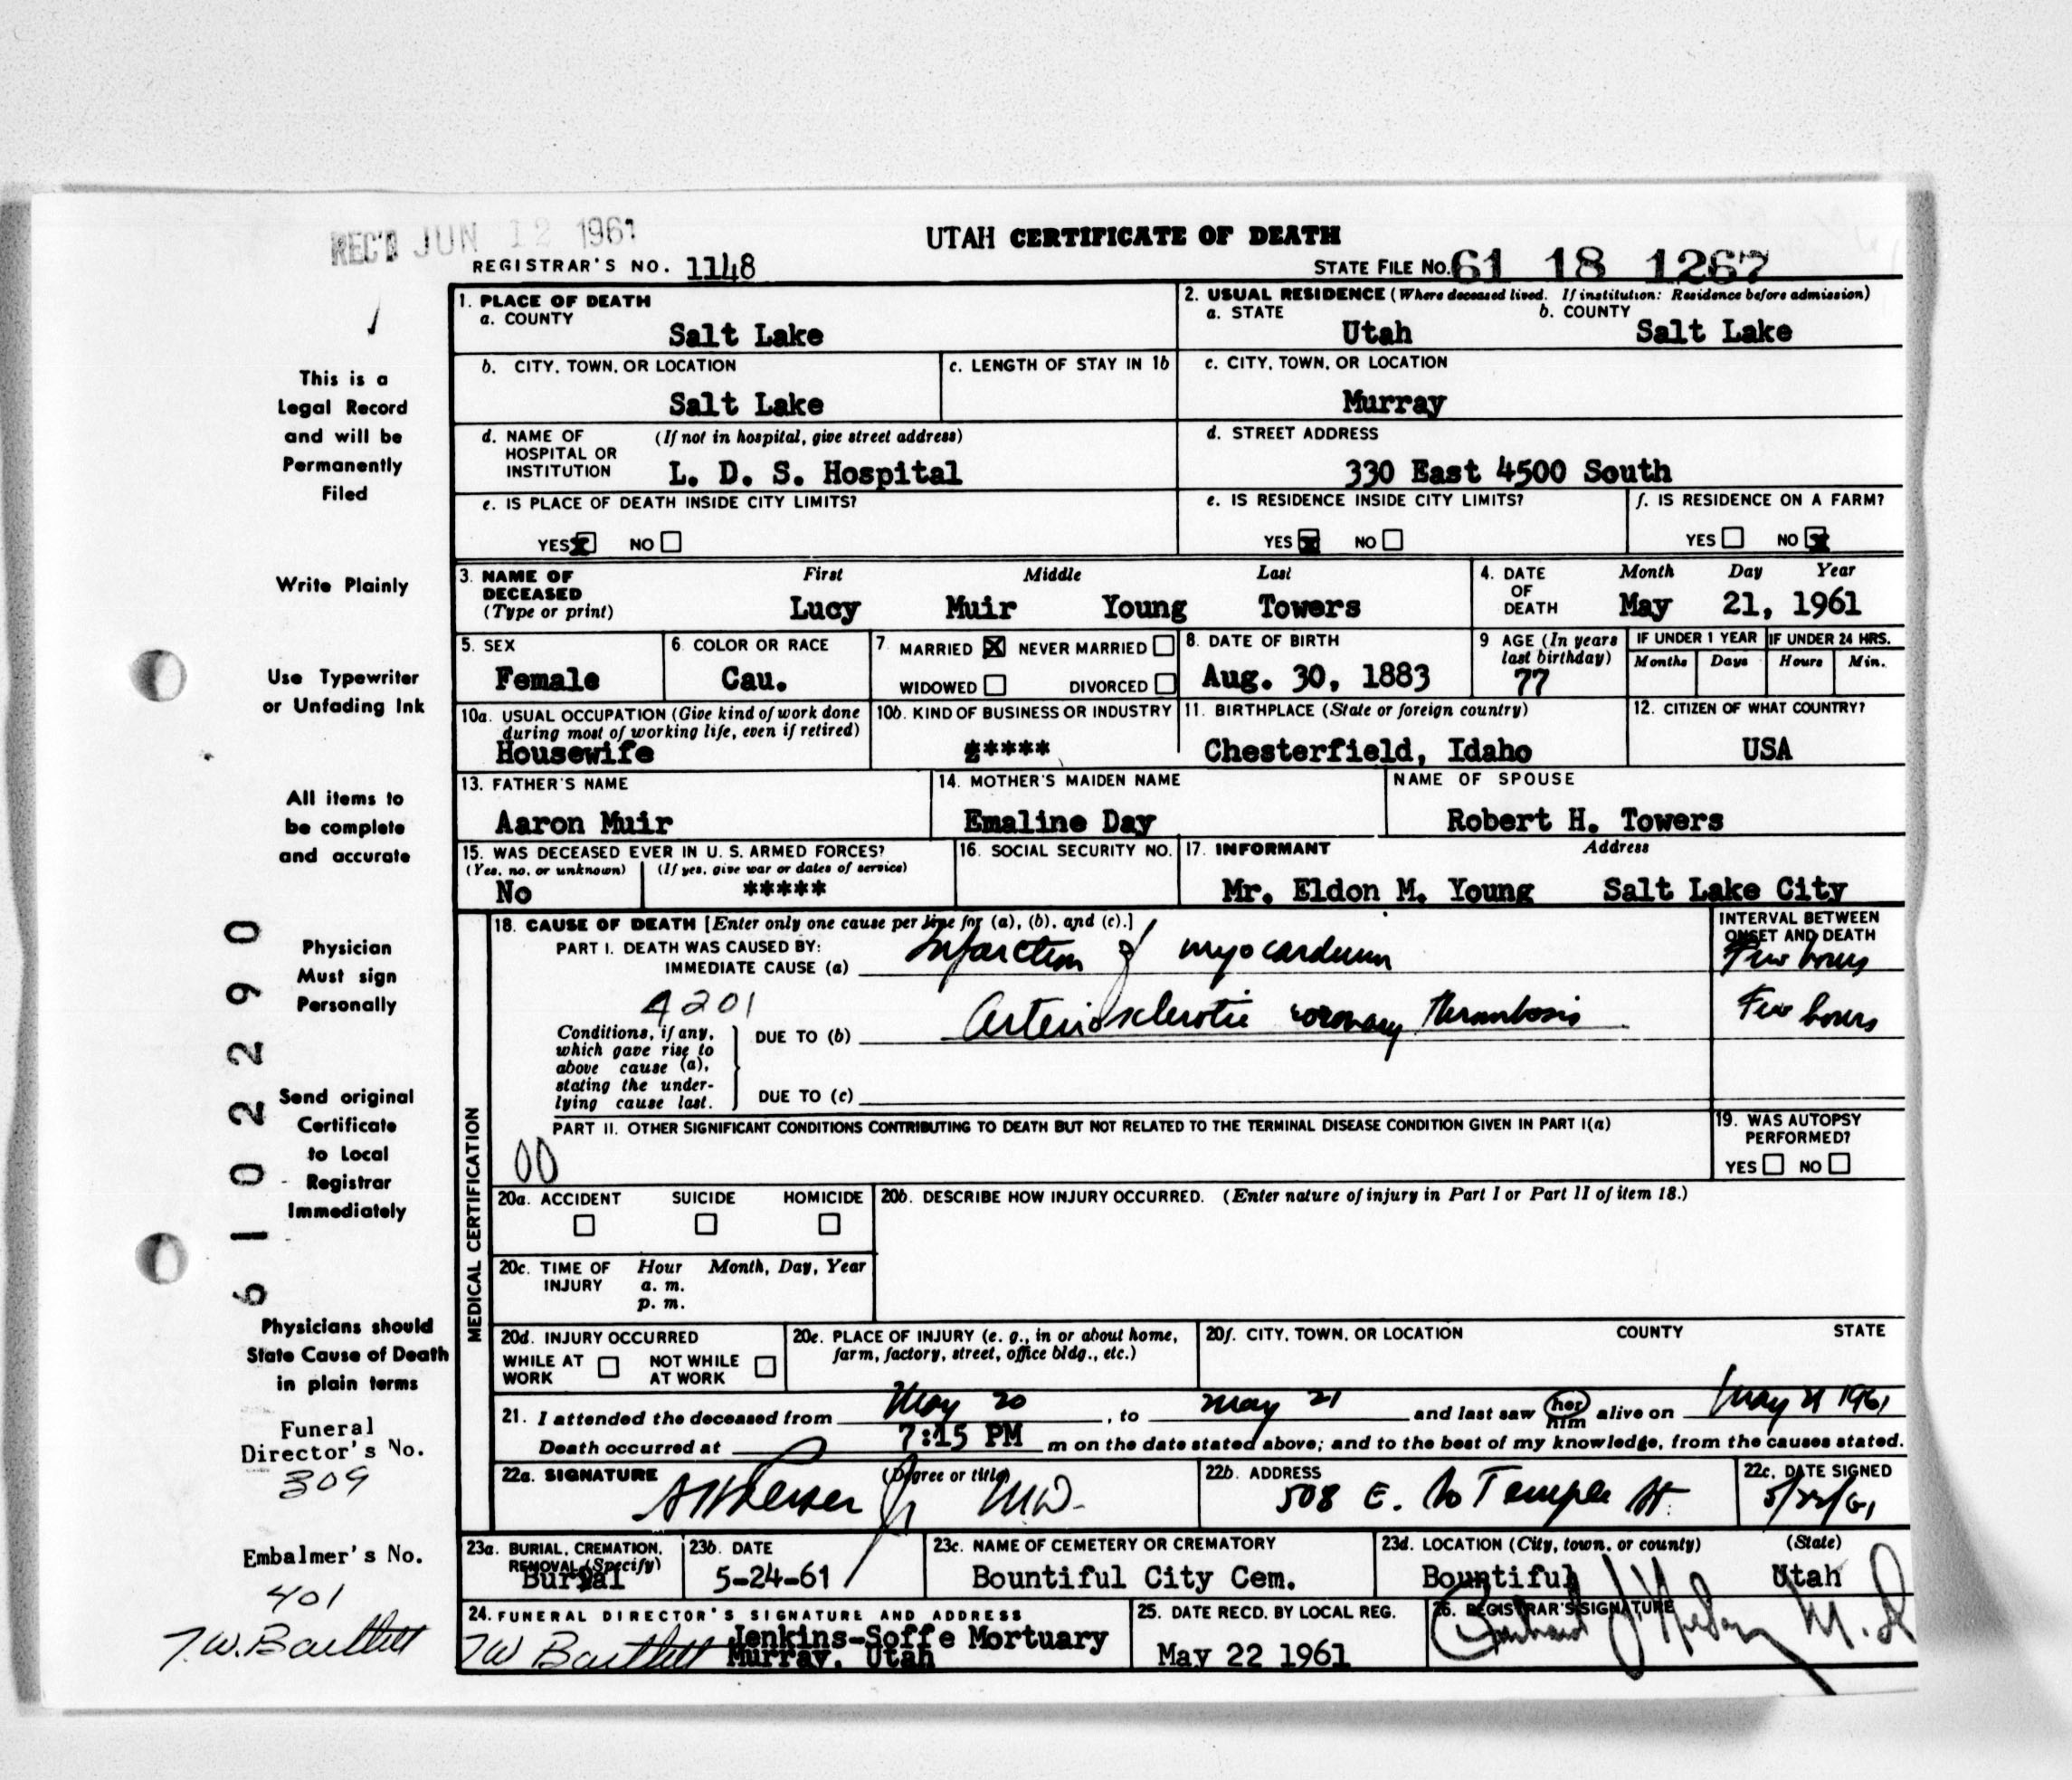 REC'D JUN 12 1961
UTAH CERTIFICATE OF DEATH
REGISTRAR'S NO. 1148
STATE FILE NO. 61 18 1267
This is a
Legal Record
and will be
Permanently
Filed
Write Plainly
Use Typewriter
or Unfading Ink
All items to
be complete
and accurate
Physician
Must sign
Personally
Send original
Certificate
to Local
Registrar
Immediately
Physicians should
State Cause of Death
in plain terms
Funeral
Director's No.
309
Embalmer's No.
401
T.W. Bartlett
61022290
1. PLACE OF DEATH
a. COUNTY
Salt Lake
2. USUAL RESIDENCE (Where deceased lived. If institution: Residence before admission)
a. STATE b. COUNTY
Utah Salt Lake
b. CITY, TOWN, OR LOCATION
Salt Lake
c. LENGTH OF STAY IN 1b
c. CITY, TOWN, OR LOCATION
Murray
d. NAME OF (If not in hospital, give street address)
HOSPITAL OR
INSTITUTION L. D. S. Hospital
d. STREET ADDRESS
330 East 4500 South
e. IS PLACE OF DEATH INSIDE CITY LIMITS?
YES NO
e. IS RESIDENCE INSIDE CITY LIMITS?
YES NO
f. IS RESIDENCE ON A FARM?
YES NO
3. NAME OF First Middle Last
DECEASED
(Type or print) Lucy Muir Young Towers
4. DATE Month Day Year
OF
DEATH May 21, 1961
5. SEX
Female
6. COLOR OR RACE
Cau.
7. MARRIED NEVER MARRIED
WIDOWED DIVORCED
8. DATE OF BIRTH
Aug. 30, 1883
9 AGE (In years
last birthday)
77
IF UNDER 1 YEAR IF UNDER 24 HRS.
Months Days Hours Min.
10a. USUAL OCCUPATION (Give kind of work done
during most of working life, even if retired)
Housewife
10b. KIND OF BUSINESS OR INDUSTRY
*****
11. BIRTHPLACE (State or foreign country)
Chesterfield, Idaho
12. CITIZEN OF WHAT COUNTRY?
USA
13. FATHER'S NAME
Aaron Muir
14. MOTHER'S MAIDEN NAME
Emaline Day
NAME OF SPOUSE
Robert H. Towers
15. WAS DECEASED EVER IN U. S. ARMED FORCES?
(Yes, no, or unknown) (If yes, give war or dates of service)
No *****
16. SOCIAL SECURITY NO.
17. INFORMANT Address
Mr. Eldon M. Young Salt Lake City
MEDICAL CERTIFICATION
18. CAUSE OF DEATH [Enter only one cause per line for (a), (b), and (c).]
PART I. DEATH WAS CAUSED BY:
IMMEDIATE CAUSE (a) Infarction of myocardium
INTERVAL BETWEEN
ONSET AND DEATH
Few hours
4201
Conditions, if any,
which gave rise to
above cause (a),
stating the under-
lying cause last.
DUE TO (b) Arteriosclerotic coronary thrombosis
Few hours
DUE TO (c)
PART II. OTHER SIGNIFICANT CONDITIONS CONTRIBUTING TO DEATH BUT NOT RELATED TO THE TERMINAL DISEASE CONDITION GIVEN IN PART I(a)
00
19. WAS AUTOPSY
PERFORMED?
YES NO
20a. ACCIDENT SUICIDE HOMICIDE
20b. DESCRIBE HOW INJURY OCCURRED. (Enter nature of injury in Part I or Part II of item 18.)
20c. TIME OF Hour Month, Day, Year
INJURY a. m.
p. m.
20d. INJURY OCCURRED
WHILE AT NOT WHILE
WORK AT WORK
20e. PLACE OF INJURY (e. g., in or about home,
farm, factory, street, office bldg., etc.)
20f. CITY, TOWN, OR LOCATION COUNTY STATE
21. I attended the deceased from May 20, to May 21 and last saw her him alive on May 21 1961
Death occurred at 7:15 PM m on the date stated above; and to the best of my knowledge, from the causes stated.
22a. SIGNATURE (Degree or title)
Jr MD.
22b. ADDRESS
508 E. So Temple St.
22c. DATE SIGNED
5/22/61
23a. BURIAL, CREMATION,
REMOVAL (Specify)
Burial
23b. DATE
5-24-61
23c. NAME OF CEMETERY OR CREMATORY
Bountiful City Cem.
23d. LOCATION (City, town, or county) (State)
Bountiful Utah
24. FUNERAL DIRECTOR'S SIGNATURE AND ADDRESS
TW Bartlett Jenkins-Soffe Mortuary
Murray, Utah
25. DATE RECD. BY LOCAL REG.
May 22 1961
26. REGISTRAR'S SIGNATURE
M.D